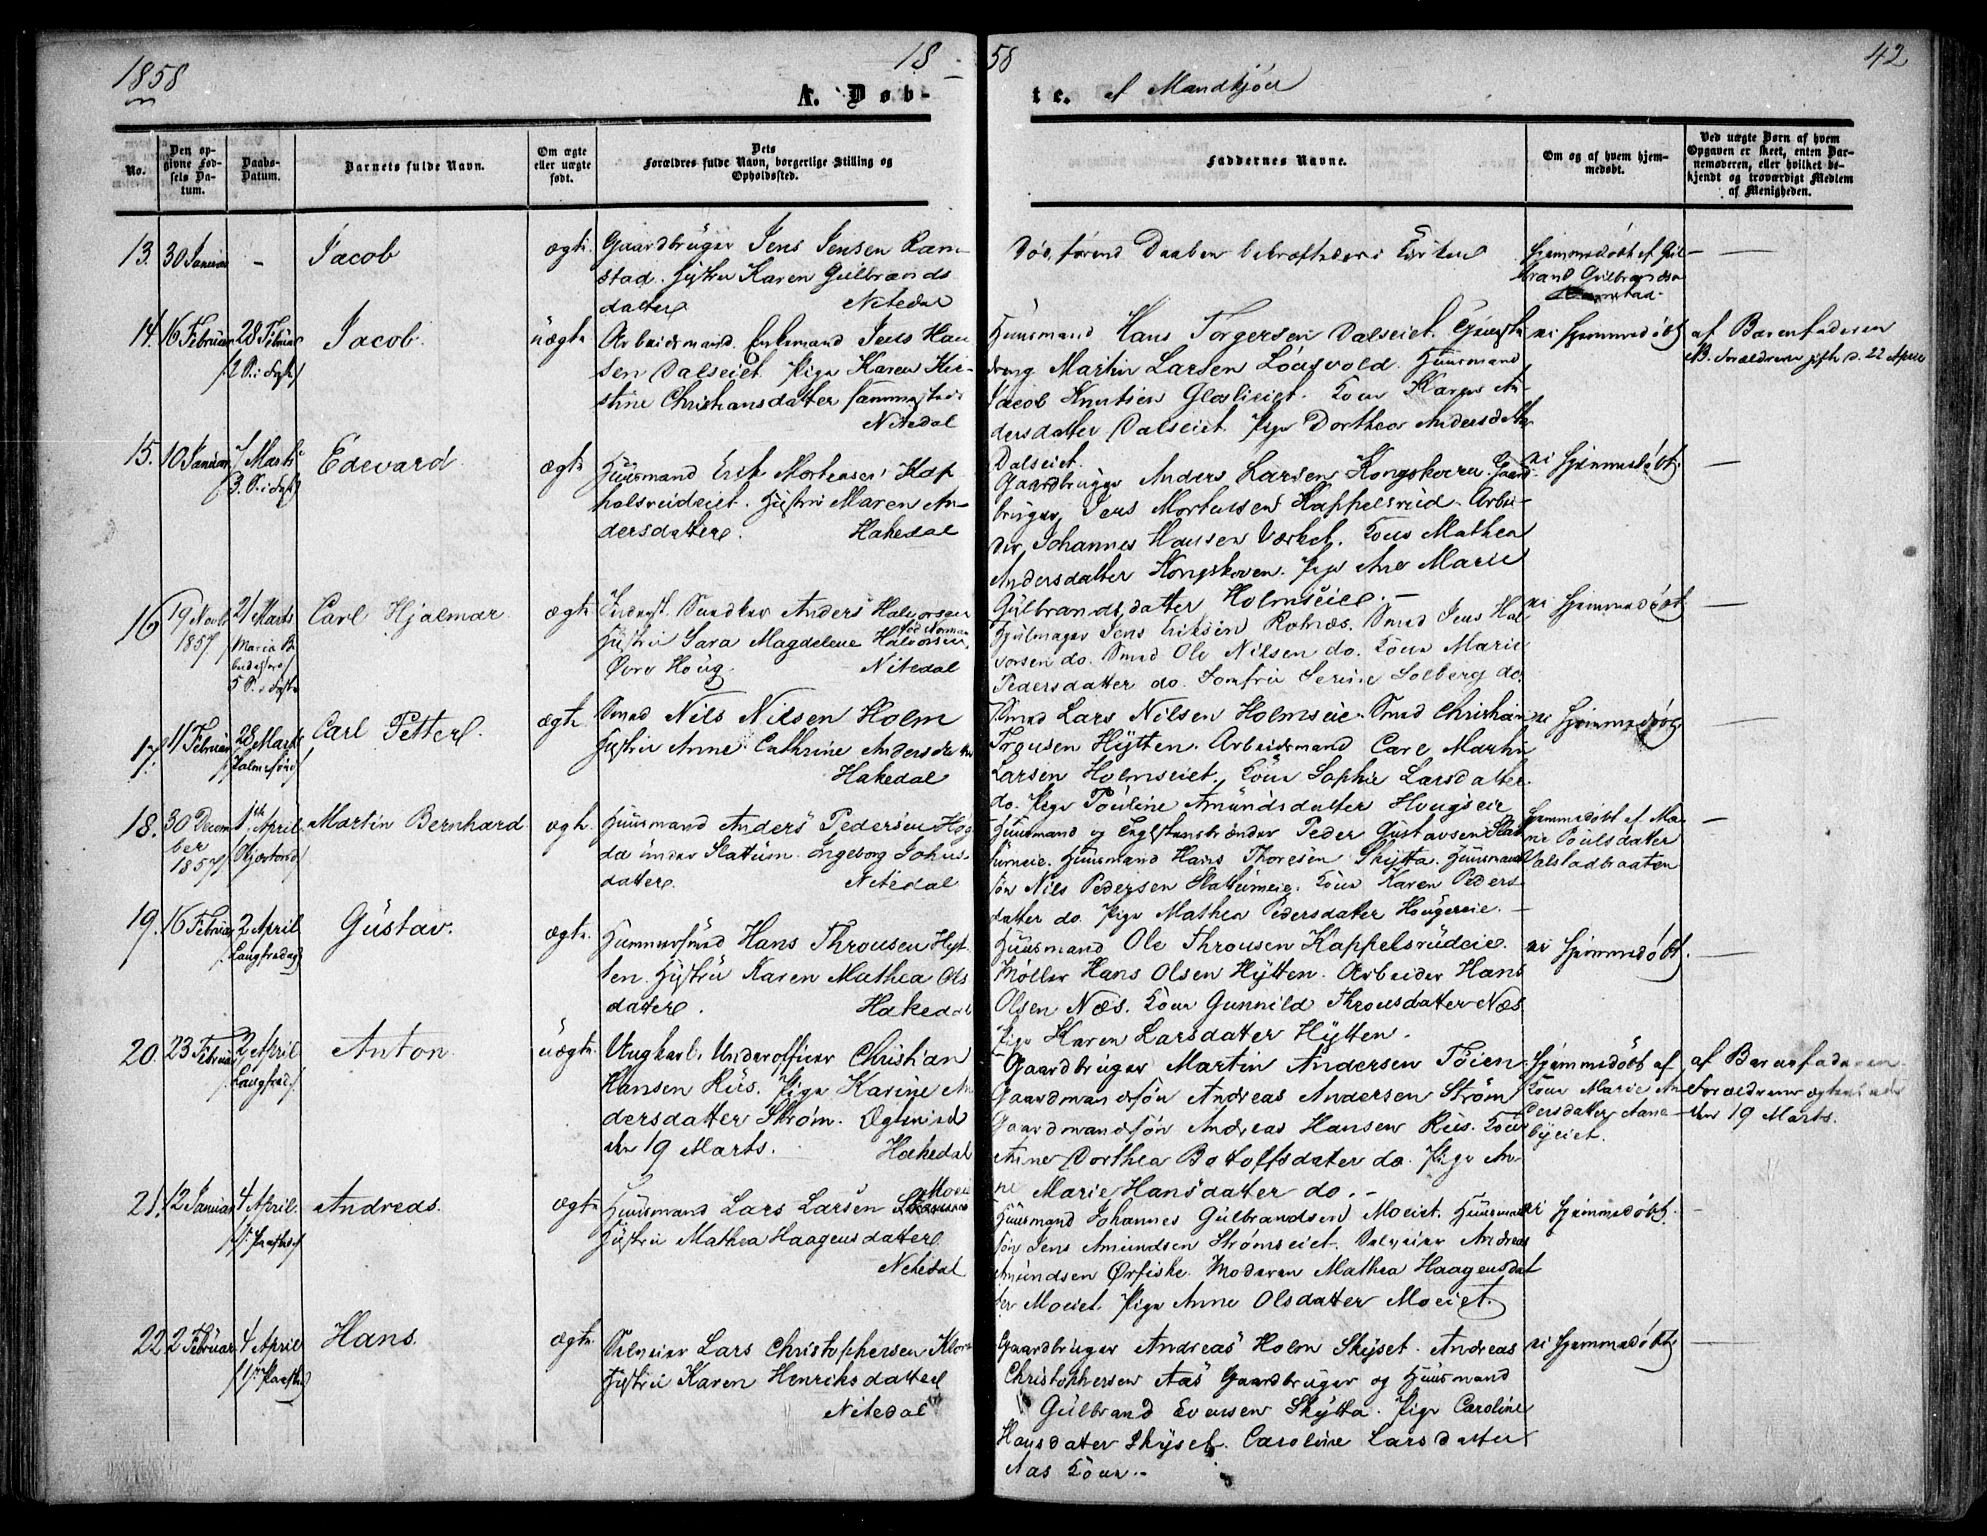 1858
18 58
42
A. Døb-
te. af Mandkjøn
No.
Den op-
givne Fød-
sels Da-
tum.
Daabs-
Datum.
Barnets fulde Navn.
Om ægte
eller uægte
født.
Dets
Forældres fulde Navn, borgerlige Stilling og
Opholdssted.
Faddernes Navne.
Om og af hvem hjem-
medøbt.
Ved uægte Børn af hvem
Opgaven er skeet, enten Bar-
nemoderen, eller hvilket be-
kjendt og troværdigt Medlem
af Menigheden.
13. 30 Januar - Jacob ægte
Gaardbruger Jens Jensen Ram-
stad. Hustru Karen Gulbrands
datter Nitedal
Død, førend Daaben bekræftedes i Kirken
Hjemmedøbt af Gul
brand Gulbrandsen
14. 16 Februar 28 Februar
2 S. i Faste Jacob. uægte
Arbeidsmand. Enkemand Jens Han
sen Dalseiet. Pige Karen Kir-
stine Christiansdatter sammesteds
Nitedal
Huusmand Hans Torgersen Dalseiet.
dreng Martin Larsen Løvsvold. Huusmand
Jacob Knutsen Glaslieiet. Kone Karen An-
dersdatter Dalseiet. Pige Dorthea Andersdatter
Dalseiet.
ei Hjemmedøbt
af Barnefaderen
NB. Forældrene gift d. 22 April
15. 10 Januar 7 Marts
3. S. i Faste Edevard ægte
Huusmand Erik Mortensen Kap
holsrudeiet. Hustru Maren An-
dersdatter. Hakedal
Gaardbruger Anders Larsen Kongskoven. Gaard-
bruger Jens Mortensen Kappelsrud. Arbei-
der Johannes Hansen Værket. Kone Mathea
Andersdatter Kongskoven. Pige Ane Marie
Gulbrandsdatter Holmseie. -
ei Hjemmedøbt.
16 19 Novb
1857 21 Marts
Maria Be
budelse
5 S. i Faste Carl Hjalmar ægte
Anders Halvorsen
Hustru Sara Magdelene Halvorsen
fød Norman
Øvre Houg. Nitedal
Hjulmager Jens Eriksen Rotnæs. Smed Jens Hal
vorsen do. Smed Ole Nilsen do. Kone Marie
Pedersdatter do. Jomfru Serine Solberg do.
ei Hjemmedøbt
17. 11 Februar 28 Marts
Palmesønd Carl Petter. ægte
Smed Nils Nilsen Holm
Hustru Anne Cathrine Andersdatter
Hakedal
Smed Lars Nilsen Holmseie. Smed Christian
Torgusen Hytten. Arbeidsmand Carl Martin
Larsen Holmseiet. Kone Sophie Larsdatter
do. Pige Pouline Amundsdatter Hougseie
ei Hjemmedøbt
18. 30 Decem
ber
1857 1ste April
Skjærtorsd Martin Bernhard ægte.
Huusmand Anders Pedersen Høg
da under Slattum. Ingeborg Johns
datter. Nitedal
Huusmand og Teglstensbrænder Peder Gustavsen Slat
tumeie. Huusmand Hans Thoresen Skytta. Huusmand
søn Nils Pedersen Slattumeie. Kone Karen Peders
datter do. Pige Mathea Pedersdatter Hougereie. -
Hjemmedøbt af Ma-
rie Poulsdatter
Valstadbraaten
19. 16 Februar 2 April
Langfredag Gustav. ægte.
Hammersmed Hans Thronsen Hyt-
ten. Hustru Karen Mathea Ols
datter. Hakedal
Huusmand Ole Thronsen Kappelsrudeie.
Møller Hans Olsen Hytten. Arbeider Hans
Olsen Næs. Kone Gunnild Thronsdatter Næs.
Pige Karen Larsdatter Hytten.
ei Hjemmedøbt.
20. 23 Februar 2 April
Langfred. Anton uægte.
Ungkarl. Underofficer Christian
Hansen Rus. Pige Karine An
dersdatter Strøm. Ægteviet
den 19 Marts. Hakedal
Gaardbruger Martin Andersen Tøien
Gaardmandssøn Andreas Andersen Strøm
Gaardmandssøn Andreas Hansen Rus. Kone
Anne Dorthea Botolfsdatter do. Pige An-
ne Marie Hansdatter do. -
Hjemmedøbt af
Kone Marie An-
dersdatter Aane
byeiet.
af Barnefaderen.
Forældrene ægteviede
den 19 Marts.
21. 12 Januar 4 April.
1ste Paaskedag Andreas. ægte
Huusmand Lars Larsen Moeie
Hustru Mathea Haagensdatter
Nitedal
Huusmand Johannes Gulbrandsen Moeiet. Huusmand
søn Jens Amundsen Strømseiet. Selveier Andreas
Amundsen Ørfiske. Moderen Mathea Haagensdat
ter Moeiet. Pige Anne Olsdatter Moeiet.
ei Hjemmedøbt.
22 2 Februar 4 April
1ste Paaskedag Hans. ægte.
Selveier Lars Christophersen
Hustru Karen Henriksdatter
Nitedal
Gaardbruger Andreas Holm Skyset. Andreas
Christophersen Aas Gaardbruger og Huusmand
Gulbrand Evensen Skytta. Pige Caroline
Hansdatter Skyset. Caroline Larsdatter
Aas Kone. -
ei Hjemmedøbt.